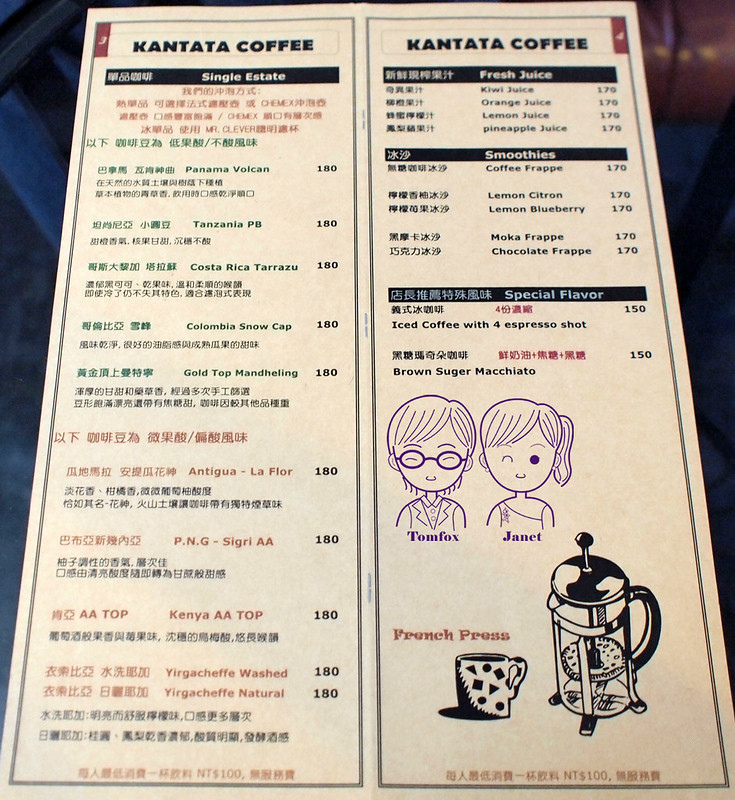 3
KANTATA COFFEE
單品咖啡 Single Estate
我們的沖泡方式:
熱單品 可選擇法式濾壓壺 或 CHEMEX沖泡壺
濾壓壺 口感豐富飽滿 / CHEMEX 順口有層次感
冰單品 使用 MR.CLEVER聰明濾杯
以下 咖啡豆為 低果酸/不酸風味
巴拿馬 瓦肯神曲 Panama Volcan 180
在天然的水質土壤與樹蔭下種植
草本植物的青草香, 飲用時口感乾淨順口
坦尚尼亞 小圓豆 Tanzania PB 180
甜橙香氣, 核果甘甜, 沉穩不酸
哥斯大黎加 塔拉蘇 Costa Rica Tarrazu 180
濃郁黑可可、乾果味, 溫和柔順的喉韻
即使冷了仍不失其特色, 適合濾泡式表現
哥倫比亞 雪峰 Colombia Snow Cap 180
風味乾淨, 很好的油脂感與成熟瓜果的甜味
黃金頂上曼特寧 Gold Top Mandheling 180
渾厚的甘甜和藥草香, 經過多次手工篩選
豆形飽滿漂亮還帶有焦糖甜, 咖啡因較其他品種重
以下 咖啡豆為 微果酸/偏酸風味
瓜地馬拉 安提瓜花神 Antigua - La Flor 180
淡花香、柑橘香,微微葡萄柚酸度
恰如其名-花神, 火山土壤讓咖啡帶有獨特煙草味
巴布亞新幾內亞 P.N.G - Sigri AA 180
柚子調性的香氣, 層次佳
口感由清亮酸度隨即轉為甘蔗般甜感
肯亞 AA TOP Kenya AA TOP 180
葡萄酒般果香與莓果味, 沈穩的烏梅酸,悠長喉韻
衣索比亞 水洗耶加 Yirgacheffe Washed 180
衣索比亞 日曬耶加 Yirgacheffe Natural 180
水洗耶加:明亮而舒服檸檬味,口感更多層次
日曬耶加:桂圓、鳳梨乾香濃郁,酸質明顯,發酵酒感
每人最低消費一杯飲料 NT$100, 無服務費
4
KANTATA COFFEE
新鮮現榨果汁 Fresh Juice
奇異果汁 Kiwi Juice 170
柳橙果汁 Orange Juice 170
蜂蜜檸檬汁 Lemon Juice 170
鳳梨蘋果汁 pineapple Juice 170
冰沙 Smoothies
無糖咖啡冰沙 Coffee Frappe 170
檸檬香柚冰沙 Lemon Citron 170
檸檬苺果冰沙 Lemon Blueberry 170
黑摩卡冰沙 Moka Frappe 170
巧克力冰沙 Chocolate Frappe 170
店長推薦特殊風味 Special Flavor
義式冰咖啡 4份濃縮 150
Iced Coffee with 4 espresso shot
黑糖瑪奇朵咖啡 鮮奶油+焦糖+黑糖 150
Brown Suger Macchiato
Tomfox Janet
French Press
每人最低消費一杯飲料 NT$100, 無服務費